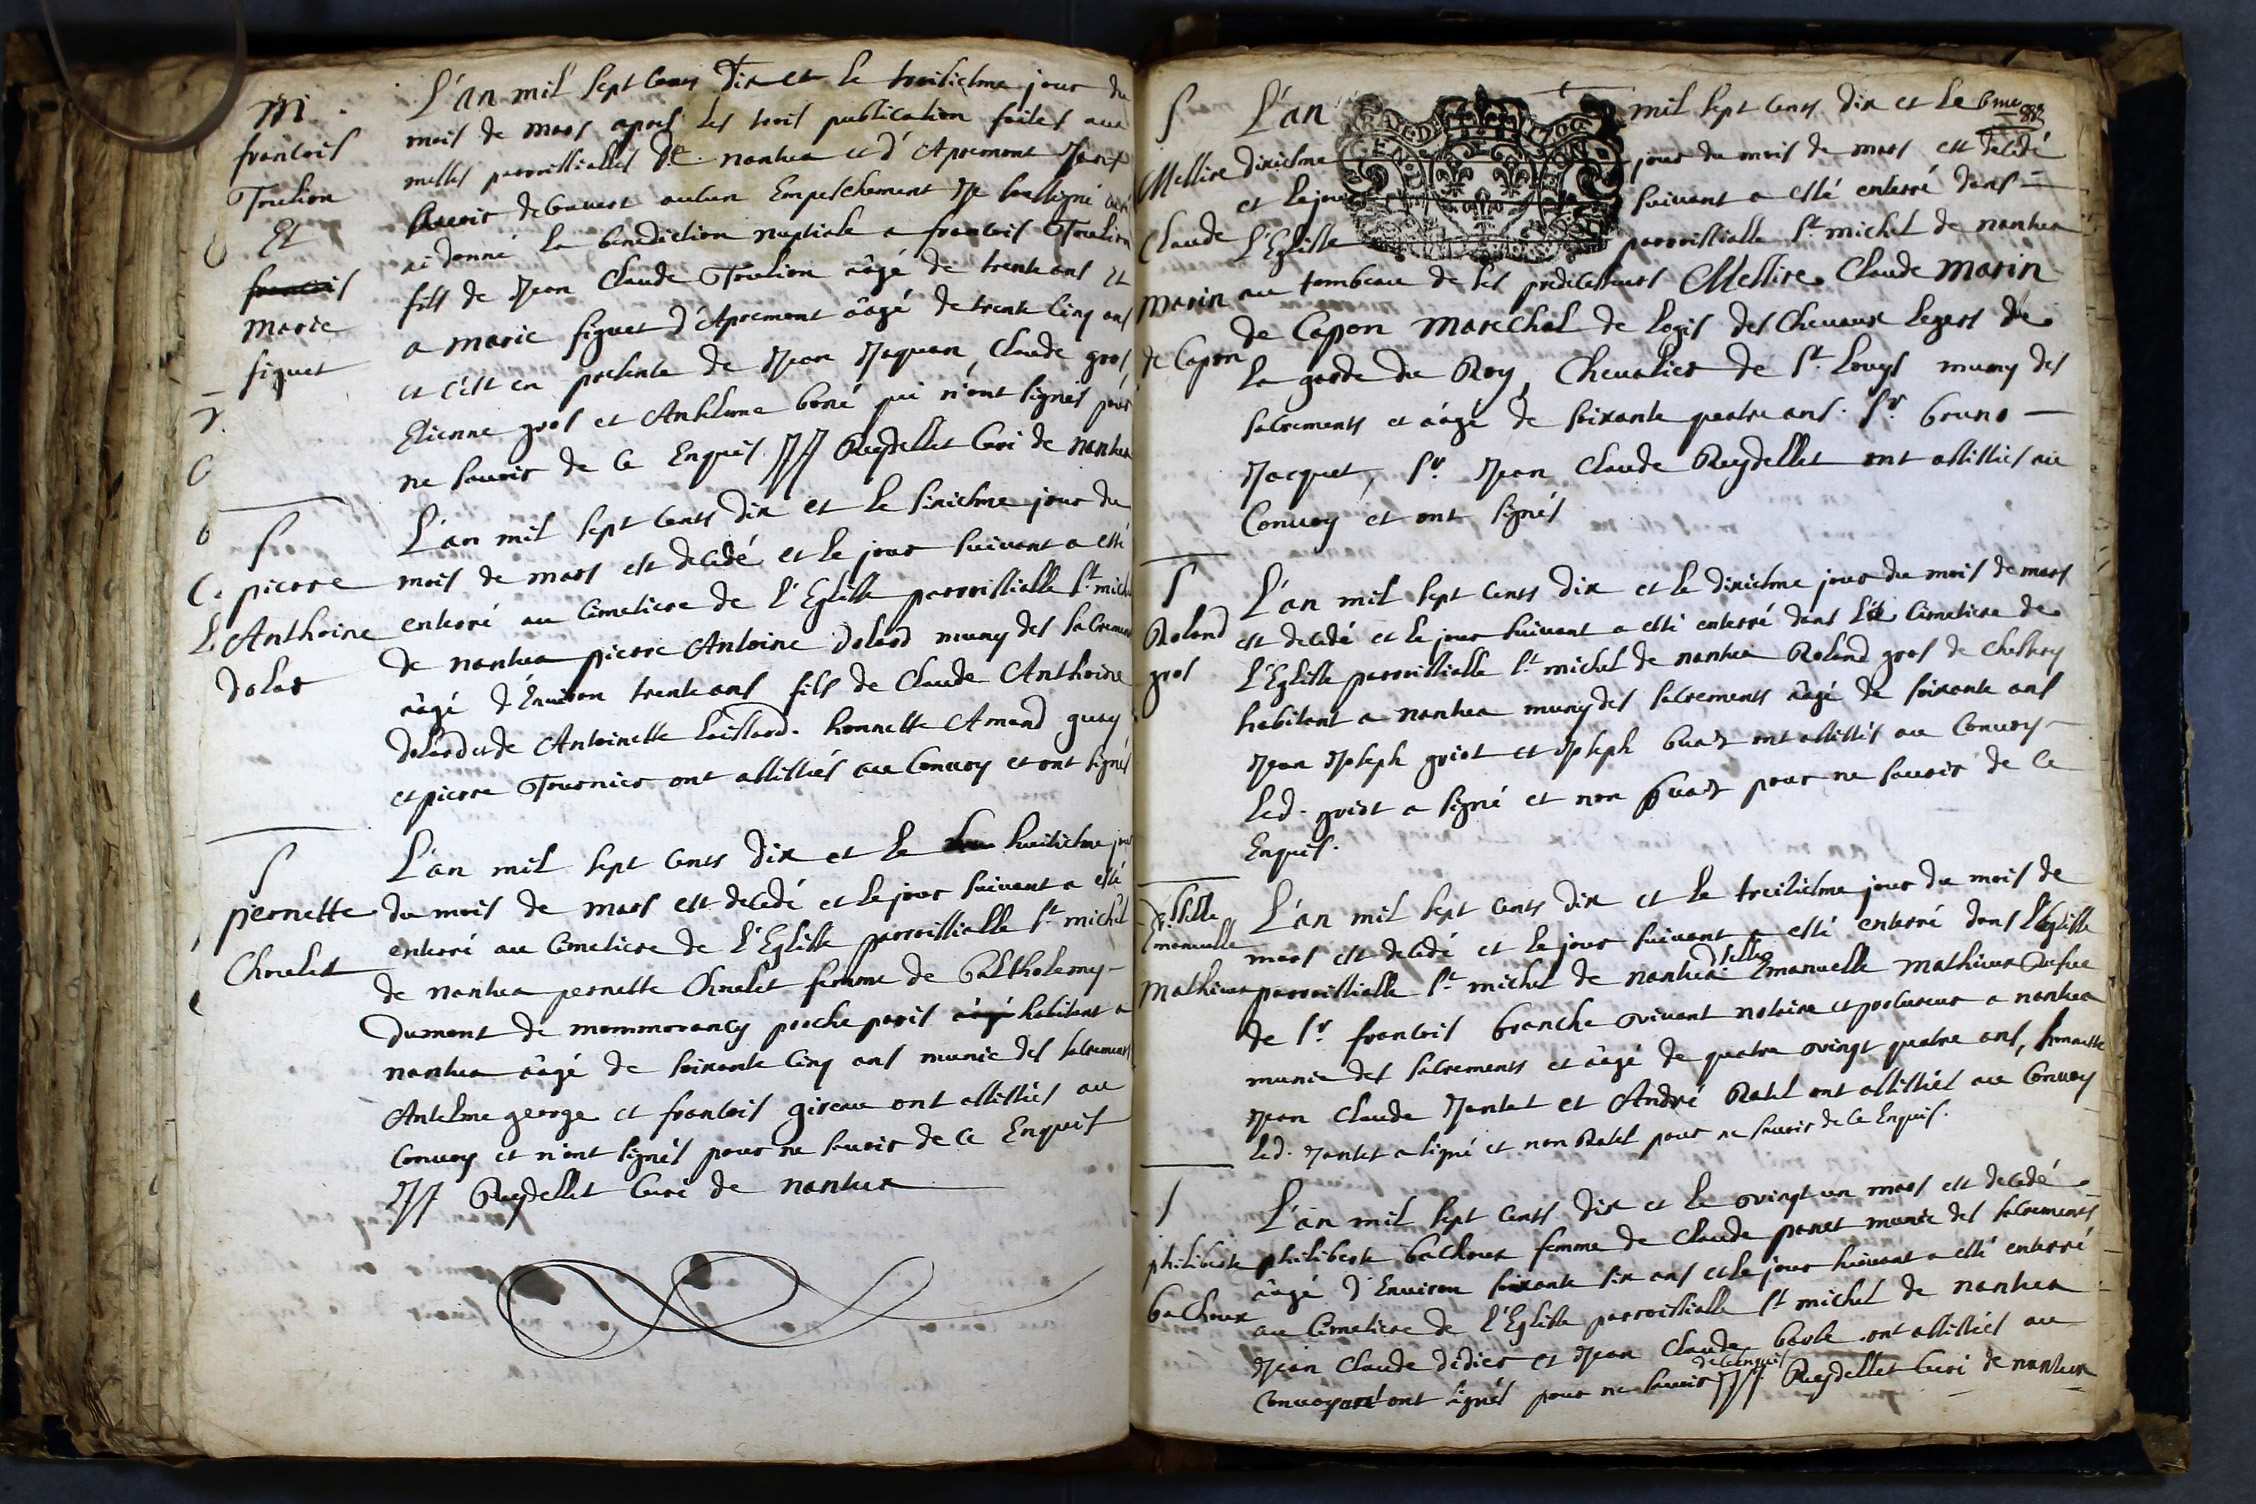 M
francois
Toulion
Et
francois
marie
figuet
L'an mil sept cens Dix et le troisiesme jour du
mois de mars apres les trois publication faites aux
messes parroissialles de nantua et d'Apremont sans
avoir decouvert aucun Empeschement Je soussigné
ai donné la benediction nuptiale a francois Toulion
fils de Jean Claude Toulion aâgé de trente ans et
a marie figuet d'Apremont aâgé de trente cinq ans
et c'est en presence de Jean Jaquan, Claude gros
Etienne gros et Anthelme boné qui n'ont signés pour
ne scavoir de ce Enquis JJ Reydellet Curé de nantua
S
pierre
Anthoine
dolar
L'an mil sept cents dix et le sixiesme jour du
mois de mars est decedé et le jour suivant a esté
enterré au Cimetiere de l'Eglise parroissialle St michel
de nantua pierre Antoine dolard muny des sacrements
aâgé d'Environ trente ans fils de Claude Anthoine
dolard et de Antoinette honnette Amand guay
et pierre Tournier ont assistés au Convoy et ont signés
S
pernette
Choulet
L'an mil sept cents dix et le huitiesme jour
du mois de mars est decedé et le jour suivant a esté
enterré au Cimetiere de l'Eglise parroissialle St michel
de nantua pernette Choulet femme de baltholemy
dumont de mommorancy proche paris aâgé habitant a
nantua aâgé de soixante cinq ans munie des sacrements
Antelme george et francois gireau ont assistés au
Convoy et n'ont signés pour ne scavoir de ce Enquis
JJ Reydellet Curé de nantua
S
Messire
Claude
marin
de Capon
L'an mil sept cents dix et le 6me
dixiesme jour du mois de mars est decedé
et le jour suivant a esté enterré dans
l'Eglise parroissialle St michel de nantua
au tombeau de ses predecesseurs Messire Claude marin
de Capon marechal de logis des Chevaux legers de
la garde du Roy, Chevalier de St Louys muny des
sacrements et aâgé de soixante quatre ans. Sr bruno
Jacquet, Sr Jean Claude Reydellet ont assistés au
Convoy et ont signés
S
Roland
gros
L'an mil sept cents dix et le dixiesme jour du mois de mars
est decedé et le jour suivant a esté enterré dans le Cimetiere de
l'Eglise parroissialle St michel de nantua Roland gros de
habitant a nantua muny des sacrements aâgé de soixante ans
Jean Joseph guiot et Joseph buat ont assistés au Convoy
led. guiot a signé et non buat pour ne scavoir de ce
Enquis.
Dlle
Emanuelle
mathieux
L'an mil sept cents dix et le treiziesme jour du mois de
mars est decedé et le jour suivant a esté enterré dans l'Eglise
parroissialle St michel de nantua Dlle Emanuelle mathieux vefve
de Sr francois branche vivant notaire et procureur a nantua
munie des sacrements et aâgé de quatre vingt quatre ans, honnette
Jean Claude Jantet et André Ratel ont assistés au Convoy
led. Jantet a signé et non Ratel pour ne scavoir de ce Enquis.
S
philiberte
bachoux
L'an mil sept cents dix et le vingt un mars est decedé
philiberte bachoux femme de Claude panet munie des sacrements
aâgé d'Environ soixante six ans et le jour suivant a esté enterré
au Cimetiere de l'Eglise parroissialle St michel de nantua
Jean Claude didier et Jean Claude ont assistés au
Convoy ont signés pour ne scavoir de ce Enquis JJ Reydellet Curé de nantua